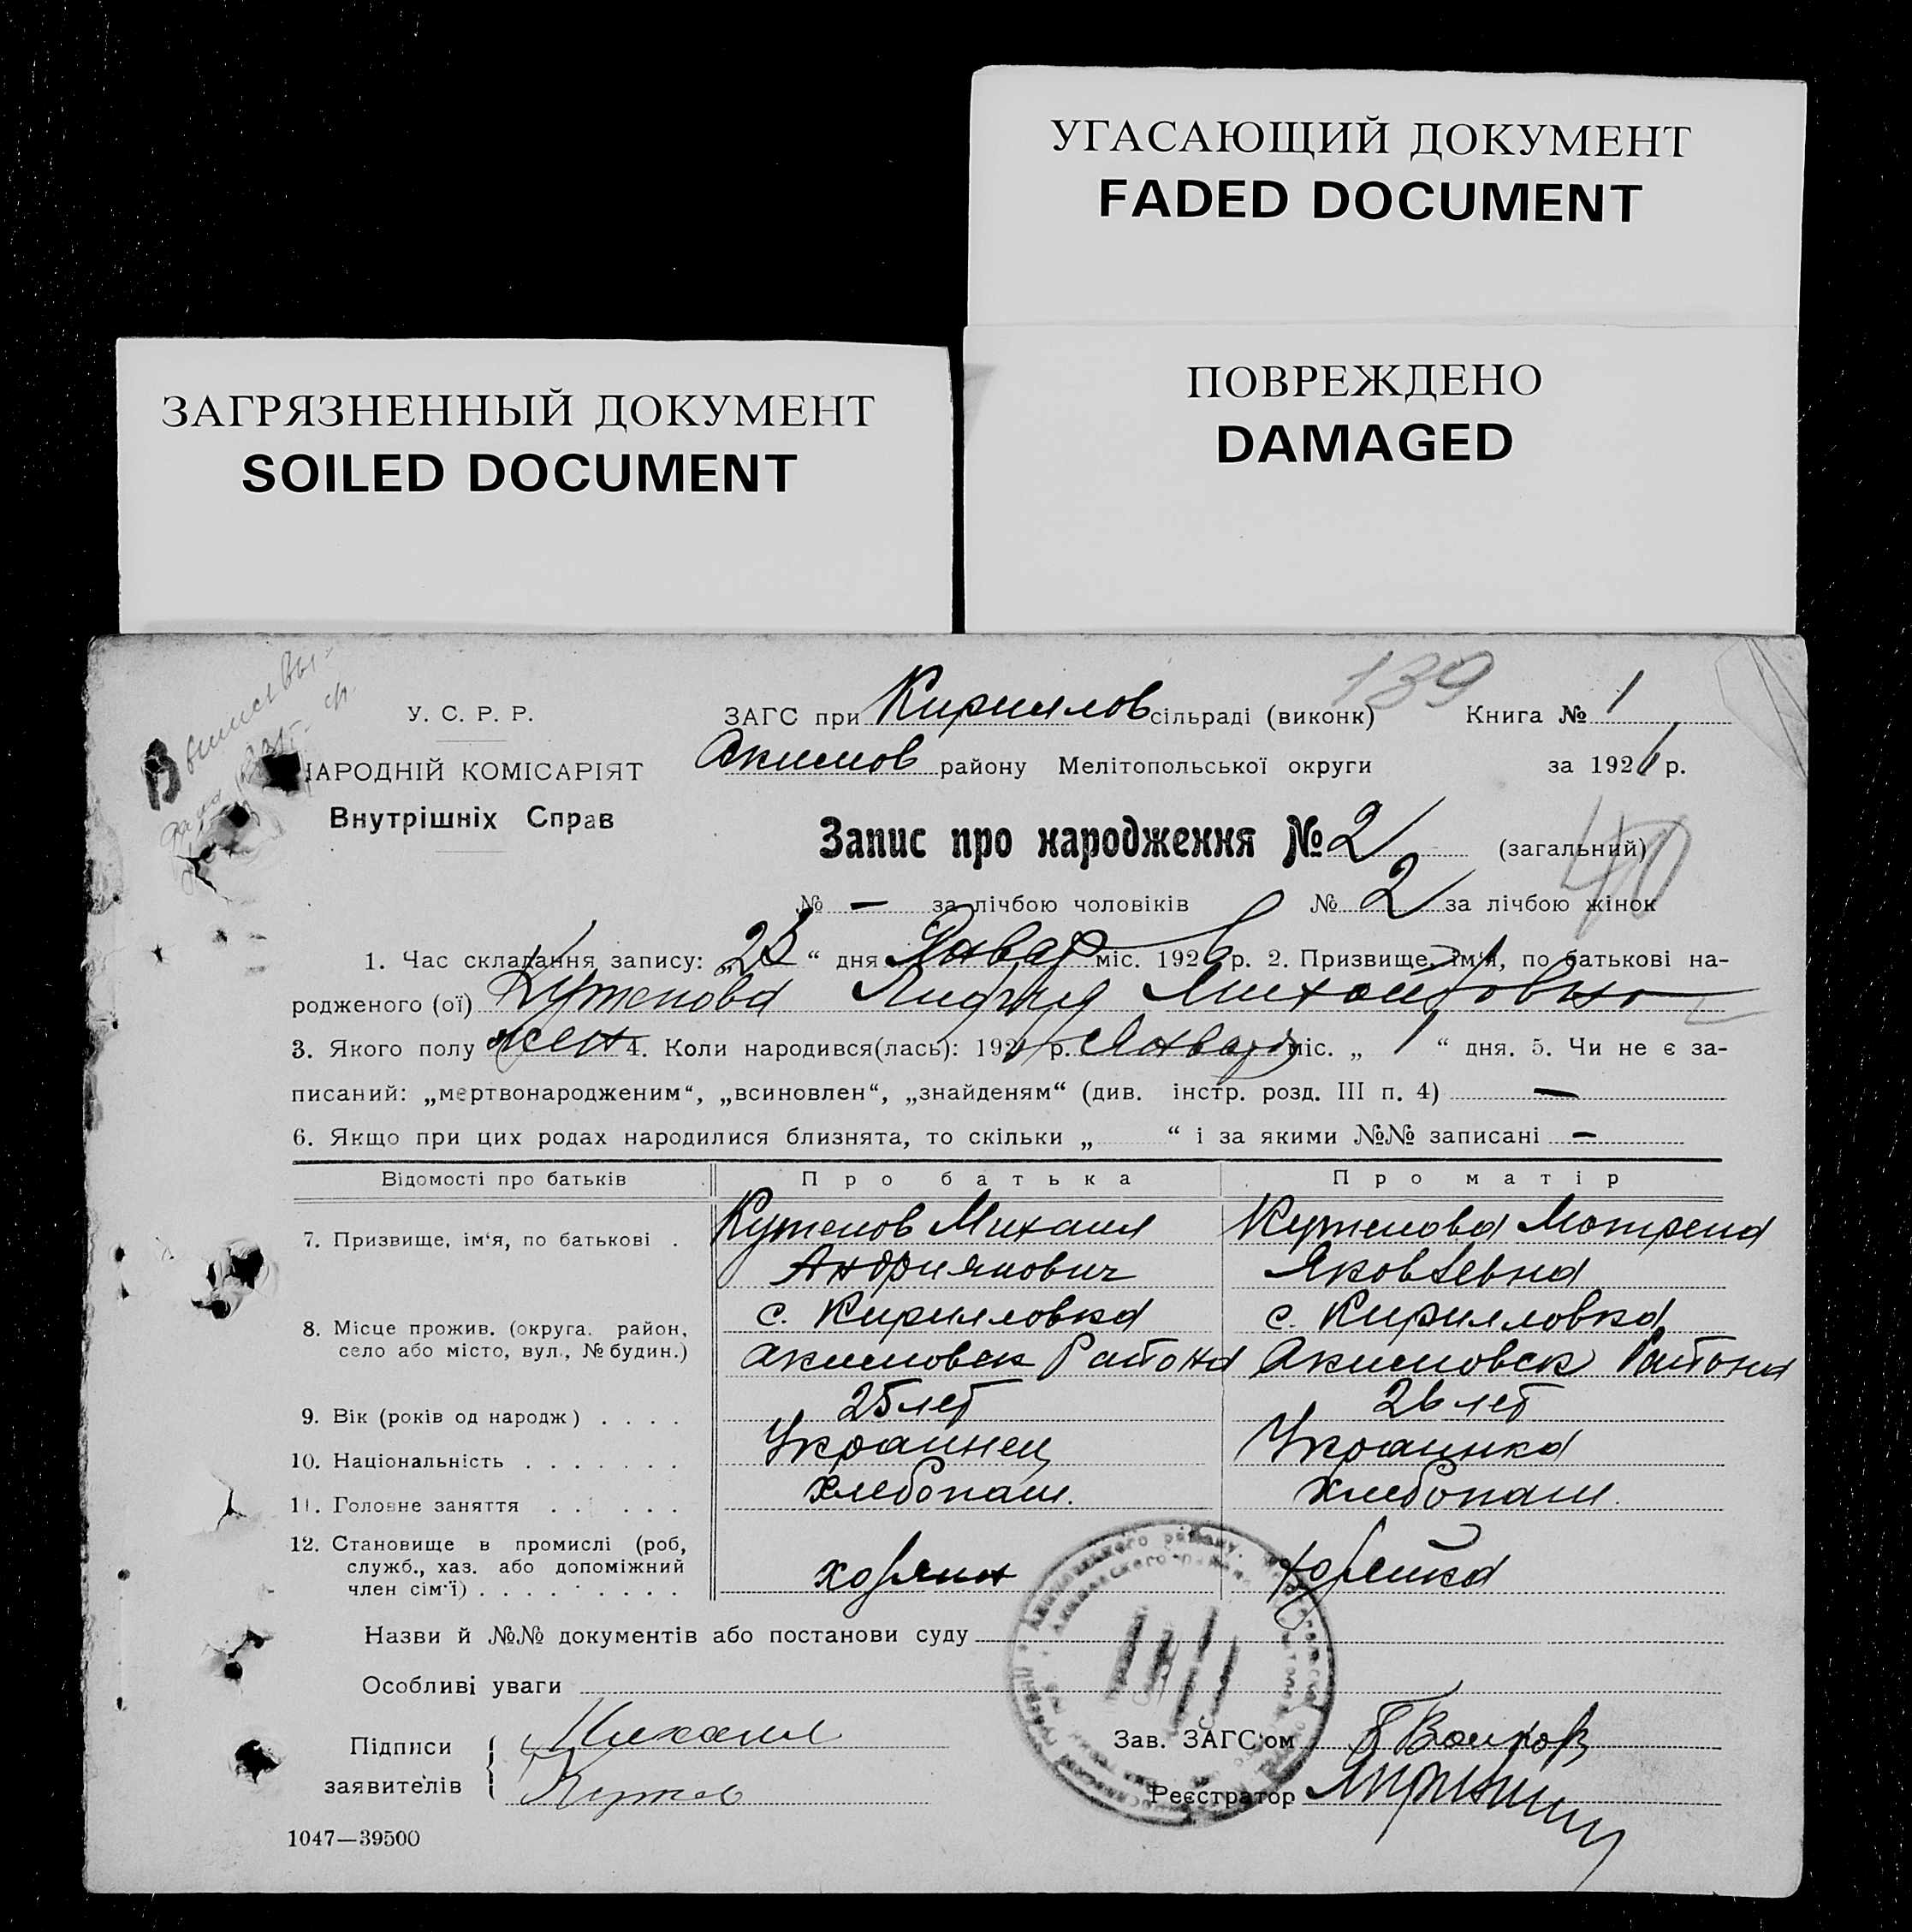 УГАСАЮЩИЙ ДОКУМЕНТ
FADED DOCUMENT
ПОВРЕЖДЕНО
DAMAGED
ЗАГРЯЗНЕННЫЙ ДОКУМЕНТ
SOILED DOCUMENT
139
У. С. Р. Р.
НАРОДНІЙ КОМІСАРІЯТ
Внутрішніх Справ
ЗАГС при Кириллов сільраді (виконк) Книга № 1
Акимов району Мелітопольської округи за 1926 р.
Запис про народження № 2 (загальний)
40
№ — за лічбою чоловіків № 2 за лічбою жінок
1. Час складання запису: „ “ дня Январ міс. 1926 р. 2. Призвище, ім‘я, по батькові на-
родженого (ої) Кутепова Лидия Михайловна
3. Якого полу жен 4. Коли народився(лась): 192 р. Январ міс. „ 1 “ дня. 5. Чи не є за-
писаний: „мертвонародженим“, „всиновлен“, „знайденям“ (див. інстр. розд. III п. 4) —
6. Якщо при цих родах народилися близнята, то скільки „ “ і за якими №№ записані —
Відомості про батьків Про батька Про матір
7. Призвище, ім‘я, по батькові . Кутепов Михаил Кутепова Мотрена
Андриянович Яковлевна
8. Місце прожив. (округа. район, с. Кирилловка с. Кирилловка
село або місто, вул., № будин.) Акимовск Района Акимовск Района
9. Вік (років од народж) . . . . 25 лет 26 лет
10. Національність . . . . . . . Украинец Украинка
11. Головне заняття . . . . . . Хлебопаш. Хлебопаш.
12. Становище в промислі (роб,
служб., хаз. або допоміжний хозяин хозяйка
член сім‘ї) . . . . . . . . .
Назви й №№ документів або постанови суду
Особливі уваги
Підписи Михаил Зав. ЗАГС‘ом
заявителів Реєстратор
1047—39500